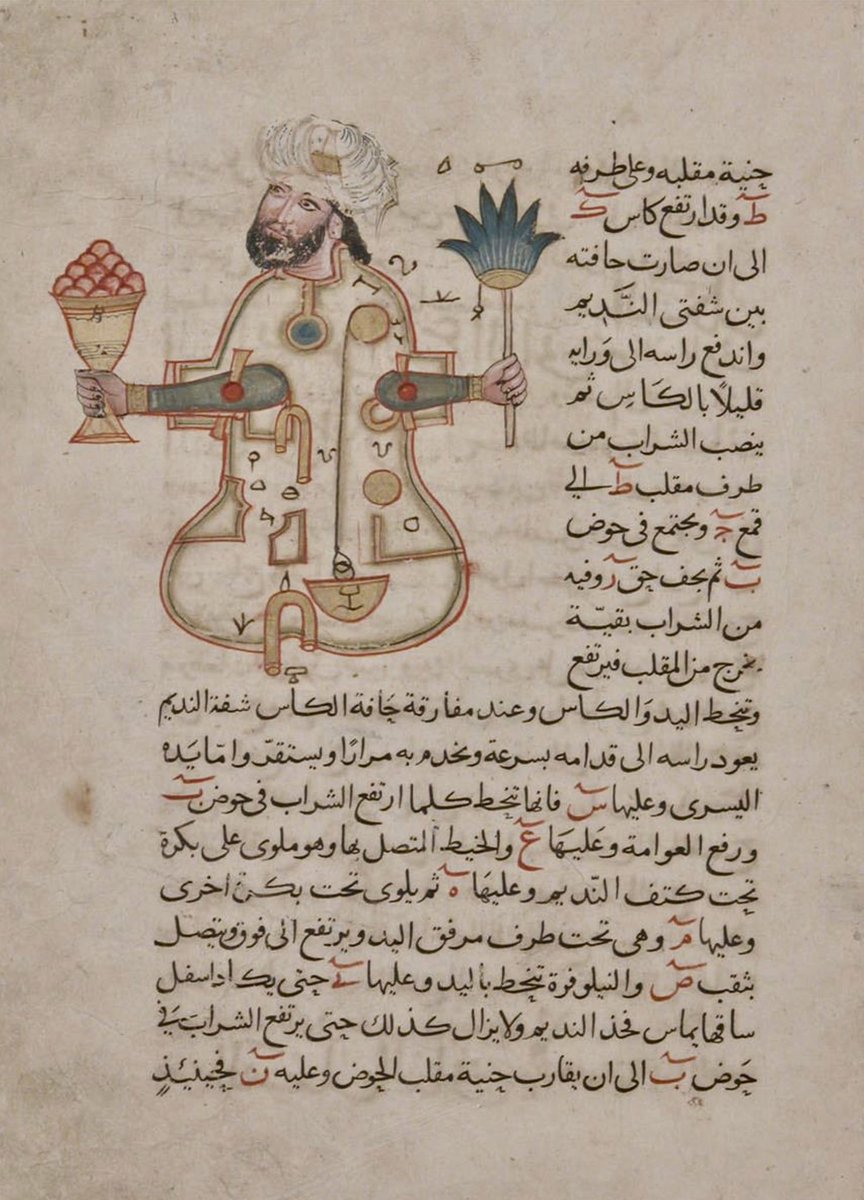 جنية مقلبه وعلى طرفه
ط وقد ارتفع كاس ك
الى ان صارت حافته
بين شفتى النَّديم
واندفع راسه الى وَرايه
قليلًا بالكَاسِ ثم
ينصب الشراب من
طرف مقلب ط الي
قمع ج ويجتمع فى حوض
ب ثم يجف حق ر وفيه
من الشراب بقيّة
يخرج من المقلب فيرتفع
وتنحط اليد وَالكاس وعند مفارقة حَافة الكاس شفة النديم
يعود راسه الى قدامه بسرعة ويخدم به مرارًا ويستقرّ وامّا يَده
اليسرى وعليها س فانها تنحط كلما ارتفع الشراب فى حوض ب
ورفع العوامة وعَليهَا ع والخيط المتصل بها وهو ملوى على بكرة
تحت كتف النّديم وعليهَا ه ثم يلوى تحت بكرة اخرى
وعليها م وهى تحت طرف مرفق اليد ويرتفع الى فوق ويتصل
بثقب ص والنيلوفرة تنحط باليد وعليها ى حتى يكاد اسفل
ساقها يماس فخذ النديم ولا يزال كذلك حتى يرتفع الشرابَ فى
حَوض ب الى ان يقارب جنية مقلب الحوض وعليه ن فحينئذٍ